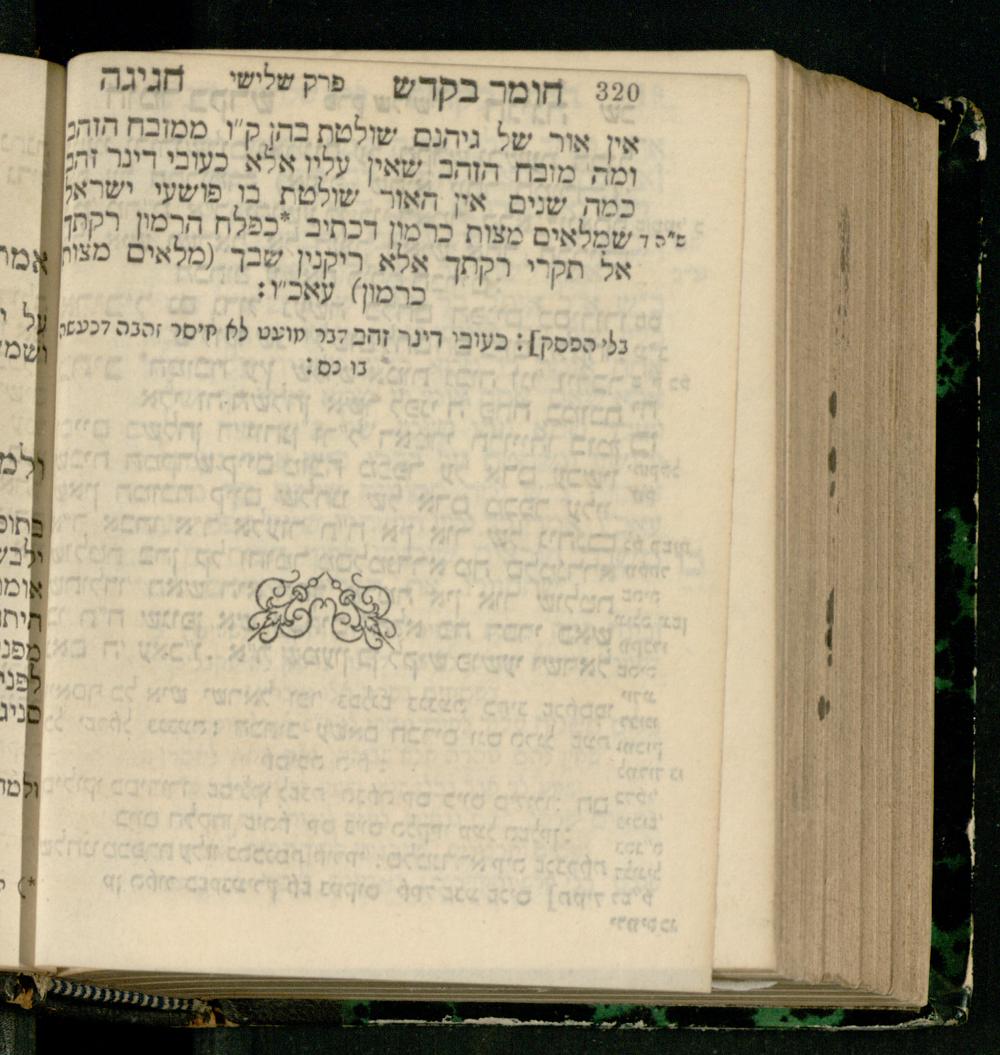 320 חומר בקדש פרק שלישי חגיגה
אין אור של גיהנם שולטת בהן ק״ו ממזבח הזהב
ומה מזבח הזהב שאין עליו אלא כעובי דינר זהב
כמה שנים אין האור שולטת בו פושעי ישראל
ס״ה ד שמלאים מצות כרמון דכתיב *כפלח הרמון רקתך
אל תקרי רקתך אלא ריקנין שבך (מלאים מצות
כרמון) עאכ״ו:
בלי הפסק]: כעובי דינר זהב דבר מועט לא חיסר זהבה דכעשה
בו נס:
אמר
על
ושמ
ולמ
בתוס
ילבש
אומ
היתה
מפני
לפני
סניג
ולמה
*)